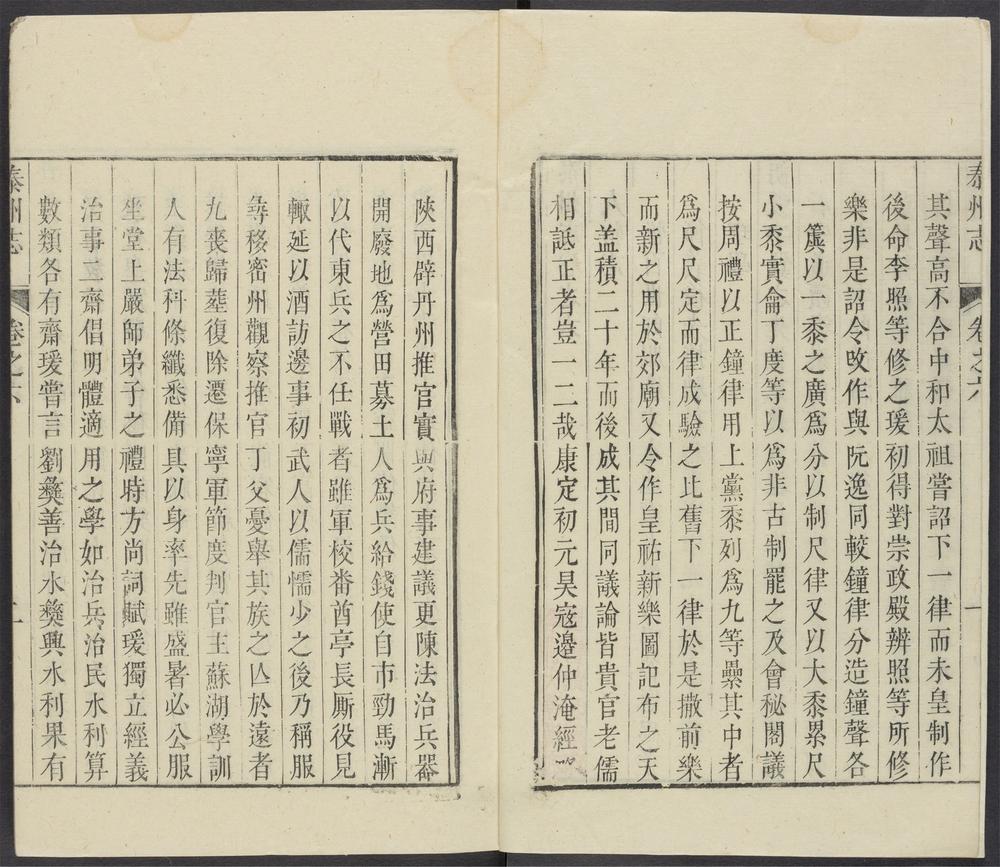 泰州志
卷之六
一
其聲高不合中和太祖嘗詔下一律而未皇制作
後命李照等修之瑗初得對崇政殿辨照等所修
樂非是詔令改作與阮逸同較鐘律分造鐘聲各
一簴以一黍之廣爲分以制尺律又以大黍累尺
小黍實龠丁度等以爲非古制罷之及會秘閣議
按周禮以正鐘律用上黨黍列爲九等纍其中者
爲尺尺定而律成驗之比舊下一律於是撤前樂
而新之用於郊廟又令作皇祐新樂圖記布之天
下盖積二十年而後成其間同議論皆貴官老儒
相詆正者豈一二哉康定初元昊寇邊仲淹經
陝西辟丹州推官實與府事建議更陳法治兵器
開廢地爲營田募土人爲兵給錢使自市勁馬漸
以代東兵之不任戰者雖軍校畨酋亭長厮役見
輙延以酒訪邊事初武人以儒懦少之後乃稱服
尋移密州觀察推官丁父憂舉其族之亾於遠者
九喪歸塟復除遷保寧軍節度判官主蘇湖學訓
人有法科條纖悉備具以身率先雖盛暑必公服
坐堂上嚴師弟子之禮時方尚詞賦瑗獨立經義
治事二齋倡明體適用之學如治兵治民水利算
數類各有齋瑗嘗言劉彜善治水彜興水利果有
泰州志
卷之六